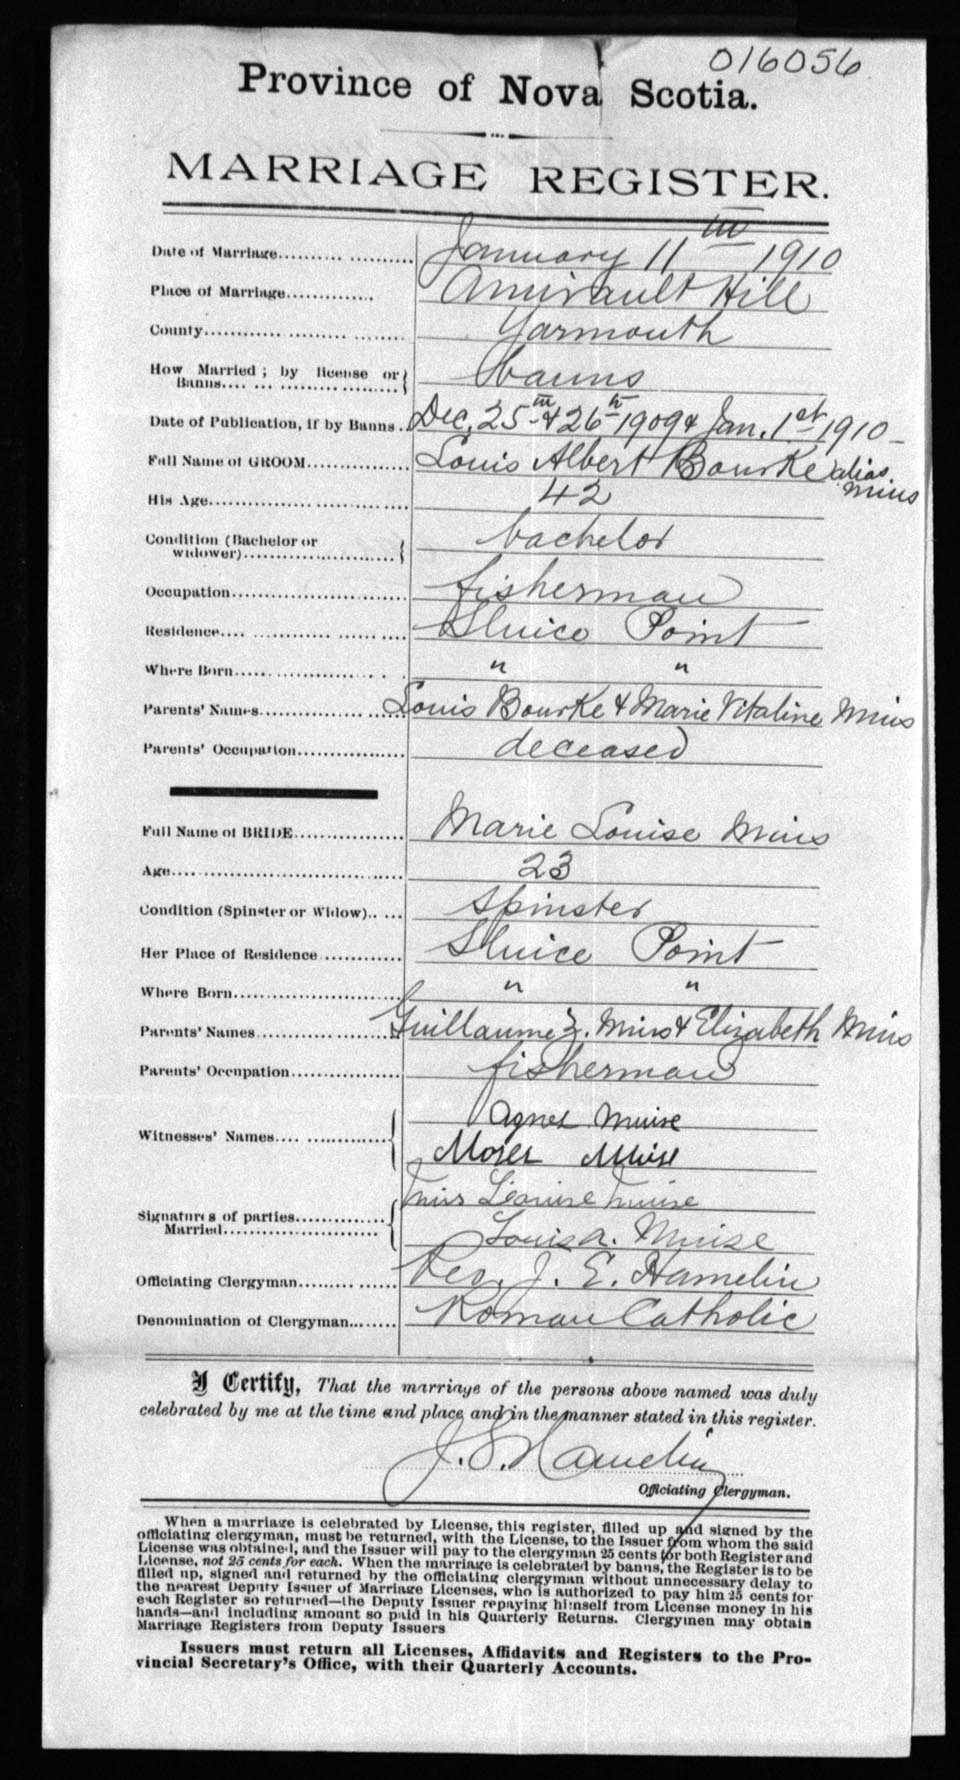 016056
Province of Nova Scotia.
MARRIAGE REGISTER.
Date of Marriage.................... January 11th 1910
Place of Marriage.............. Amirault Hill
County.................... Yarmouth
How Married; by license or
Banns.................... Banns
Date of Publication, if by Banns.. Dec. 25th & 26th 1909 & Jan. 1st 1910-
Full Name of GROOM............. Louis Albert Bourke alias
Mius
His Age.................... 42
Condition (Bachelor or
widower).................... bachelor
Occupation.................... fisherman
Residence.................... Sluice Point
Where Born.................... " "
Parents' Names.................... Louis Bourke & Marie Vitaline Mius
Parents' Occupation.............. deceased
Full Name of BRIDE.............. Marie Louise Mius
Age.................... 23
Condition (Spinster or Widow)..... spinster
Her Place of Residence............ Sluice Point
Where Born.................... " "
Parents' Names.................... Guillaume Z. Mius & Elizabeth Mius
Parents' Occupation.............. fisherman
Agnes Muise
Witnesses' Names.................
Moses Muise
Miss Louise Muise
Signatures of parties..............
Married....................
Louis A. Muise
Officiating Clergyman............. Rev. J. E. Hamelin
Denomination of Clergyman....... Roman Catholic
I Certify, That the marriage of the persons above named was duly
celebrated by me at the time and place and in the manner stated in this register.
J. E. Hamelin
Officiating Clergyman.
When a marriage is celebrated by License, this register, filled up and signed by the
officiating clergyman, must be returned, with the License, to the Issuer from whom the said
License was obtained, and the Issuer will pay to the clergyman 25 cents for both Register and
License, not 25 cents for each. When the marriage is celebrated by banns, the Register is to be
filled up, signed and returned by the officiating clergyman without unnecessary delay to
the nearest Deputy Issuer of Marriage Licenses, who is authorized to pay him 25 cents for
each Register so returned—the Deputy Issuer repaying himself from License money in his
hands—and including amount so paid in his Quarterly Returns. Clergymen may obtain
Marriage Registers from Deputy Issuers
Issuers must return all Licenses, Affidavits and Registers to the Pro-
vincial Secretary's Office, with their Quarterly Accounts.